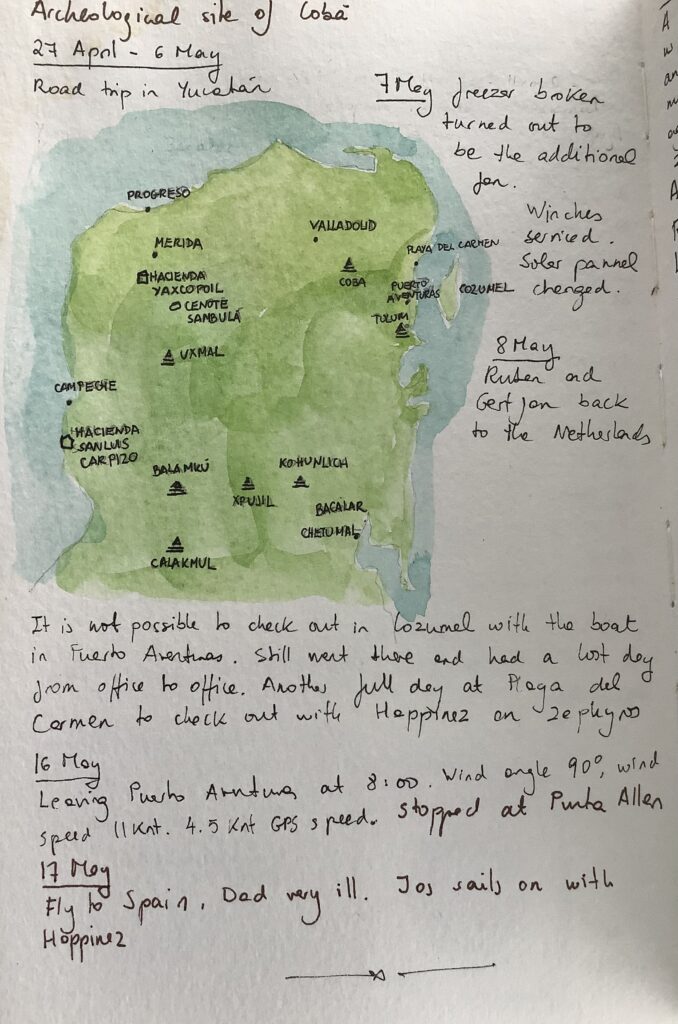 Archeological site of Cobá
27 April - 6 May
Road trip in Yucatán
7 May freezer broken
turned out to
be the additional
fan.
Winches
serviced.
Solar pannel
changed.
8 May
Ruben and
Gert Jan back
to the Netherlands
PROGRESO
MERIDA
HACIENDA
YAXCOPOIL
CENOTE
SAMBULÁ
UXMAL
VALLADOLID
COBA
PLAYA DEL CARMEN
PUERTO
AVENTURAS
COZUMEL
TULUM
CAMPECHE
HACIENDA
SAN LUIS
CARPIZO
BALAMKÚ
XPUJIL
KOHUNLICH
BACALAR
CHETUMAL
CALAKMUL
It is not possible to check out in Cozumel with the boat
in Puerto Aventuras. Still went there and had a lost day
from office to office. Another full day at Playa del
Carmen to check out with Happinez on
16 May
Leaving Puerto Aventuras at 8:00. Wind angle 90°, wind
speed 11 Knt. 4.5 Knt GPS speed. Stopped at Punta Allen
17 May
Fly to Spain, Dad very ill. Jos sails on with
Happinez